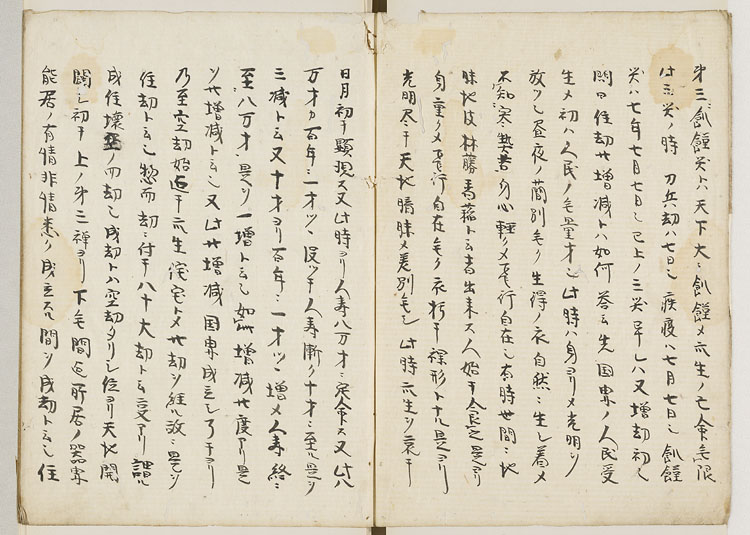 第三飢饉災ト云ハ天下大ニ飢饉メ衆生ノ亡命無限
此三災ノ時 刀兵劫ハ七日也 疾疫ハ七月七日也 飢饉ノ
災ハ七年七月七日也 已上ノ三災畢レハ又増劫初也
問曰住劫廿増減トハ如何 答云先国界ノ人民受
生メ初ハ人民ノ毛量才也 此時ハ身ヨリメ光明ヲ
放ツ也昼夜ノ簡別モ无ク生得ノ衣自然ニ生シ着メ
不知寒熱苦身心軽クメ飛行自在也 有時世間ニ地
味地皮林藤香稲ト云者出来ス人始テ食之是ヨリ
身重クメ飛行自在无ク衣朽テ裸形ト十ル是ヨリ
光明尽テ天地暗昧メ差別无シ 此時衆生ヲ哀テ
日月初テ顕現ス又此時ヨリ人寿八万才ニ定命ス又此ハ
万才カ百年ニ一才ツヽ没ツテ人寿漸ク十才ニ至ル是ヲ
三減ト云又十才ヨリ百年ニ一才ツヽ増メ人寿終ニ
至八万才 是ヲ一増ト云也 如此増減廿度アリ是
ヲ廿増減ト云也 又此廿増減国界成立シ了テヨリ
乃至空劫始迄テ衆生宅トメ廿劫ヲ経ル故ニ是ヲ
住劫ト云也 惣而劫ニ付テ八十大劫ト云変アリ 謂ル
成住壊空ノ四劫也 成劫トハ空劫タリシ位ヨリ天地開
闢シ初テ上ノ第三禅ヨリ下无間迄所居ノ器界
能居ノ有情非情悉ク成立スル間ヲ成劫ト云也 住